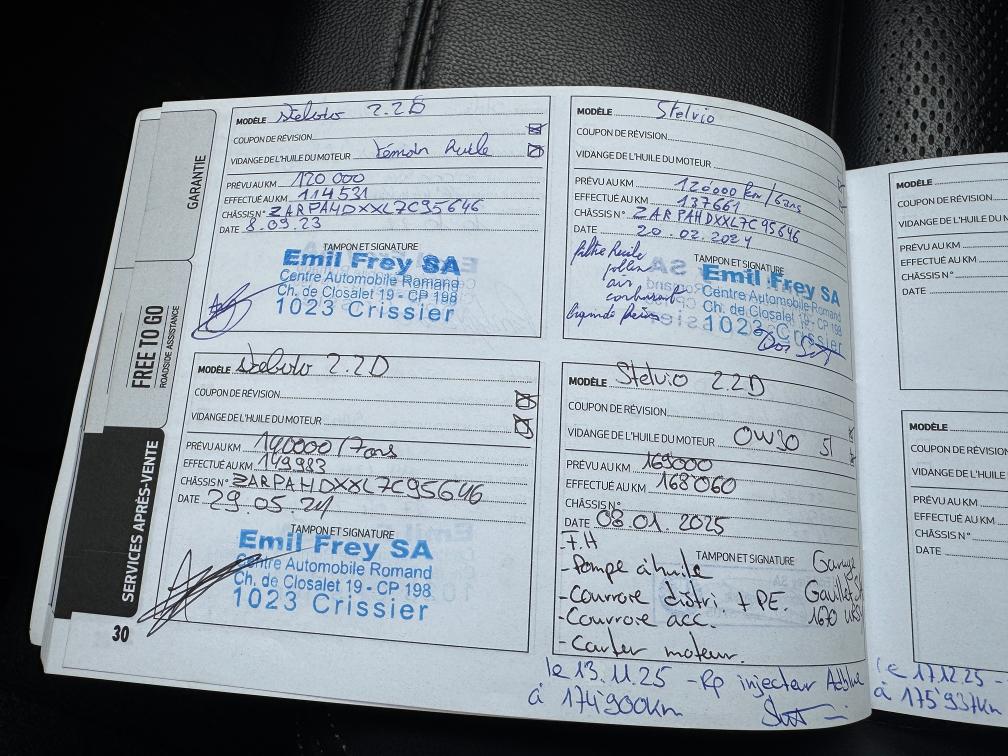 GARANTIE
FREE TO GO
ROADSIDE ASSISTANCE
SERVICES APRÈS-VENTE
30
MODÈLE Stelvio 2.2D
COUPON DE RÉVISION
VIDANGE DE L'HUILE DU MOTEUR témoin huile
PRÉVU AU KM 120 000
EFFECTUÉ AU KM 114531
CHÂSSIS N° ZARPAHDXXL7C95646
DATE 8.09.23
TAMPON ET SIGNATURE
Emil Frey SA
Centre Automobile Romand
Ch. de Closalet 19 - CP 198
1023 Crissier
MODÈLE Stelvio
COUPON DE RÉVISION
VIDANGE DE L'HUILE DU MOTEUR
PRÉVU AU KM 120000 km/6ans
EFFECTUÉ AU KM 137661
CHÂSSIS N° ZARPAHDXXL7C95646
DATE 20.02.2024
filtre huile
pollen
air
carburant
liquide frein
TAMPON ET SIGNATURE
Emil Frey SA
Centre Automobile Romand
Ch. de Closalet 19 - CP 198
1023 Crissier
MODÈLE Stelvio 2.2D
COUPON DE RÉVISION
VIDANGE DE L'HUILE DU MOTEUR
PRÉVU AU KM 140000 / 7ans
EFFECTUÉ AU KM 149983
CHÂSSIS N° ZARPAHDXXL7C95646
DATE 29.05.24
TAMPON ET SIGNATURE
Emil Frey SA
Centre Automobile Romand
Ch. de Closalet 19 - CP 198
1023 Crissier
MODÈLE Stelvio 2.2D
COUPON DE RÉVISION
VIDANGE DE L'HUILE DU MOTEUR 0W30 5l
PRÉVU AU KM 169000
EFFECTUÉ AU KM 168060
CHÂSSIS N°
DATE 08.01.2025
- F.H
- Pompe à huile
- Courroie distri. + PE.
- Courroie acc.
- Carter moteur.
TAMPON ET SIGNATURE
Garage
Gaillet SA
1670
le 13.11.25 - Rp injecteur Adblue
à 174'900km
MODÈLE
COUPON DE RÉVISION
VIDANGE DE L'HUILE
PRÉVU AU KM
EFFECTUÉ AU KM
CHÂSSIS N°
DATE
MODÈLE
COUPON DE RÉVISION
VIDANGE DE L'H
PRÉVU AU KM
EFFECTUÉ AU KM
CHÂSSIS N°
DATE
le 17.12.25 -
à 175'937km